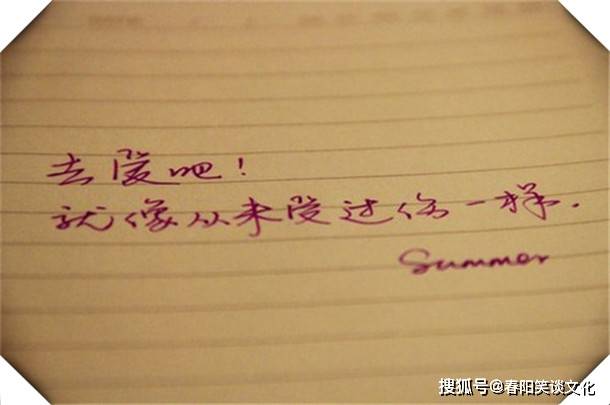 去爱吧！
就像从未受过伤一样.
Summer
搜狐号@春阳笑谈文化